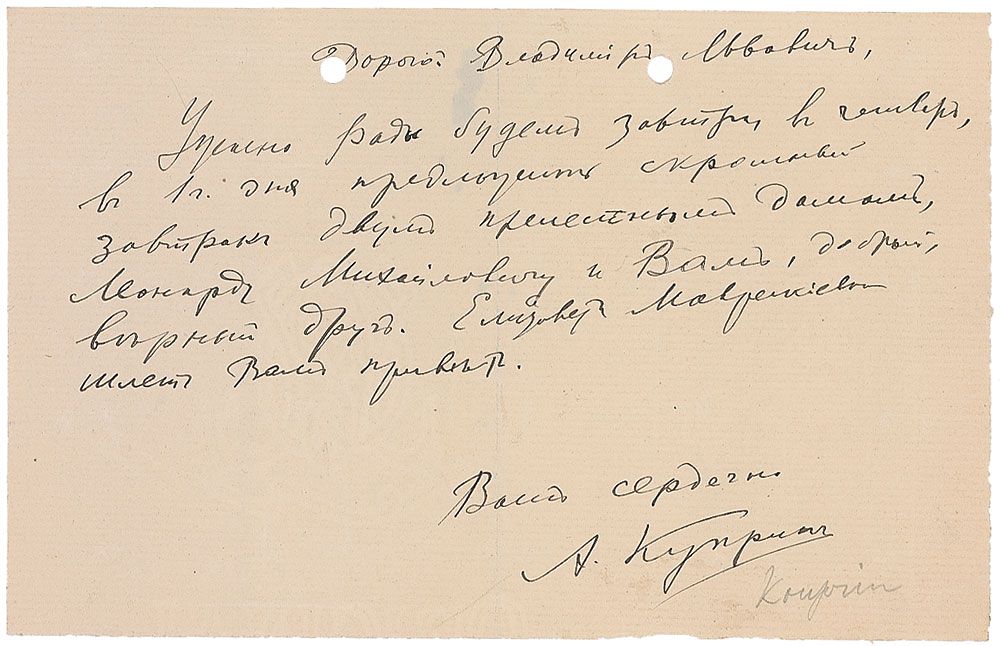 Дорогой Владимiръ Львовичъ,
Ужасно рады будемъ завтра, въ четвергъ,
въ 1 ч. дня предложить скромный
завтракъ двумъ прелестнымъ дамамъ,
Леонарду Михайловичу и Вамъ, добрый,
вѣрный другъ. Елизавета Маврикiевна
шлетъ Вамъ привѣтъ.
Вашъ сердечно
А. Купринъ
Kouprin